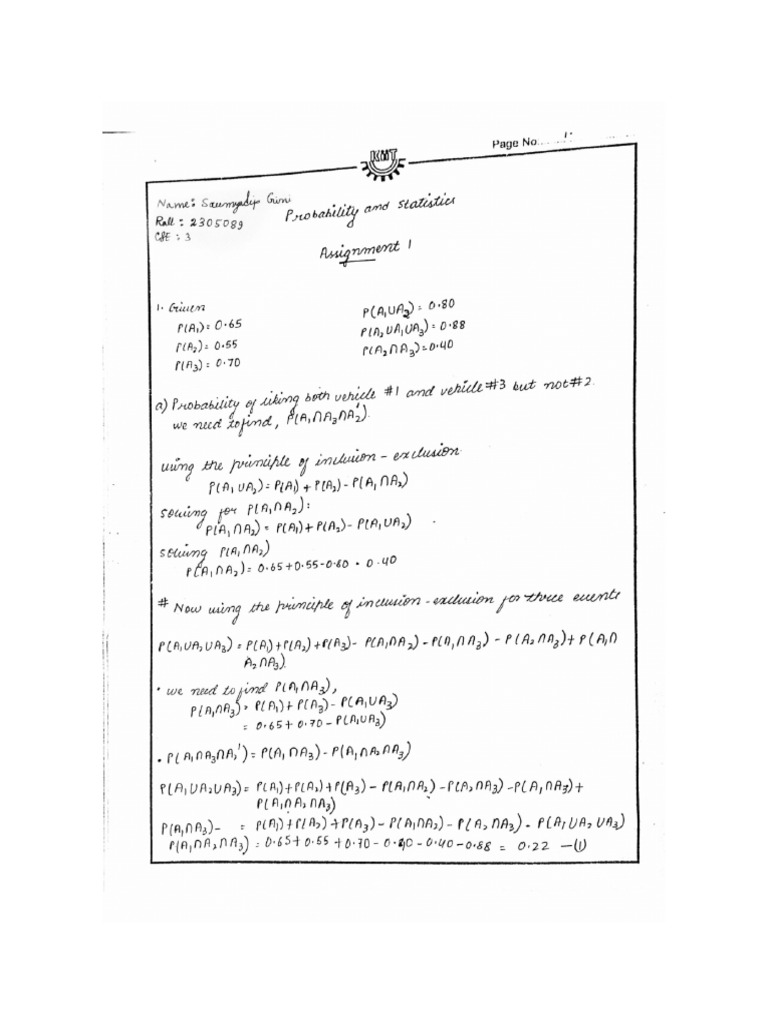 Page No.
KIIT
Name: Saumyadip Giri
Probability and statistics
Roll: 2305089
CSE: 3
Assignment 1
1. Given
P(A₁)= 0.65
P(A₂)= 0.55
P(A₃)= 0.70
P(A₁UA₂)= 0.80
P(A₂UA₁UA₃)= 0.88
P(A₂∩A₃)=0.40
a) Probability of liking both vehicle #1 and vehicle #3 but not #2.
we need to find, P(A₁∩A₃∩A₂').
using the principle of inclusion-exclusion
P(A₁UA₂)= P(A₁) + P(A₂) - P(A₁∩A₂)
solving for P(A₁∩A₂):
P(A₁∩A₂) = P(A₁) + P(A₂) - P(A₁UA₂)
solving P(A₁∩A₂)
P(A₁∩A₂)= 0.65+0.55-0.80 = 0.40
# Now using the principle of inclusion-exclusion for three events
P(A₁UA₂UA₃) = P(A₁)+P(A₂)+P(A₃)- P(A₁∩A₂)-P(A₁∩A₃) - P(A₂∩A₃)+ P(A₁∩
A₂∩A₃).
• we need to find P(A₁∩A₃),
P(A₁∩A₃)= P(A₁) + P(A₃) - P(A₁UA₃)
= 0.65+ 0.70 - P(A₁UA₃)
• P(A₁∩A₃∩A₂')= P(A₁∩A₃)- P(A₁∩A₂∩A₃)
P(A₁UA₂UA₃)= P(A₁)+P(A₂)+P(A₃) - P(A₁∩A₂) -P(A₂∩A₃) -P(A₁∩A₃)+
P(A₁∩A₂∩A₃)
P(A₁∩A₃)- = P(A₁)+P(A₂)+P(A₃)-P(A₁∩A₂)-P(A₂∩A₃) - P(A₁UA₂UA₃)
P(A₁∩A₂∩A₃) = 0.65+ 0.55 +0.70 - 0.40 - 0.40 - 0.88 = 0.22 —(1)